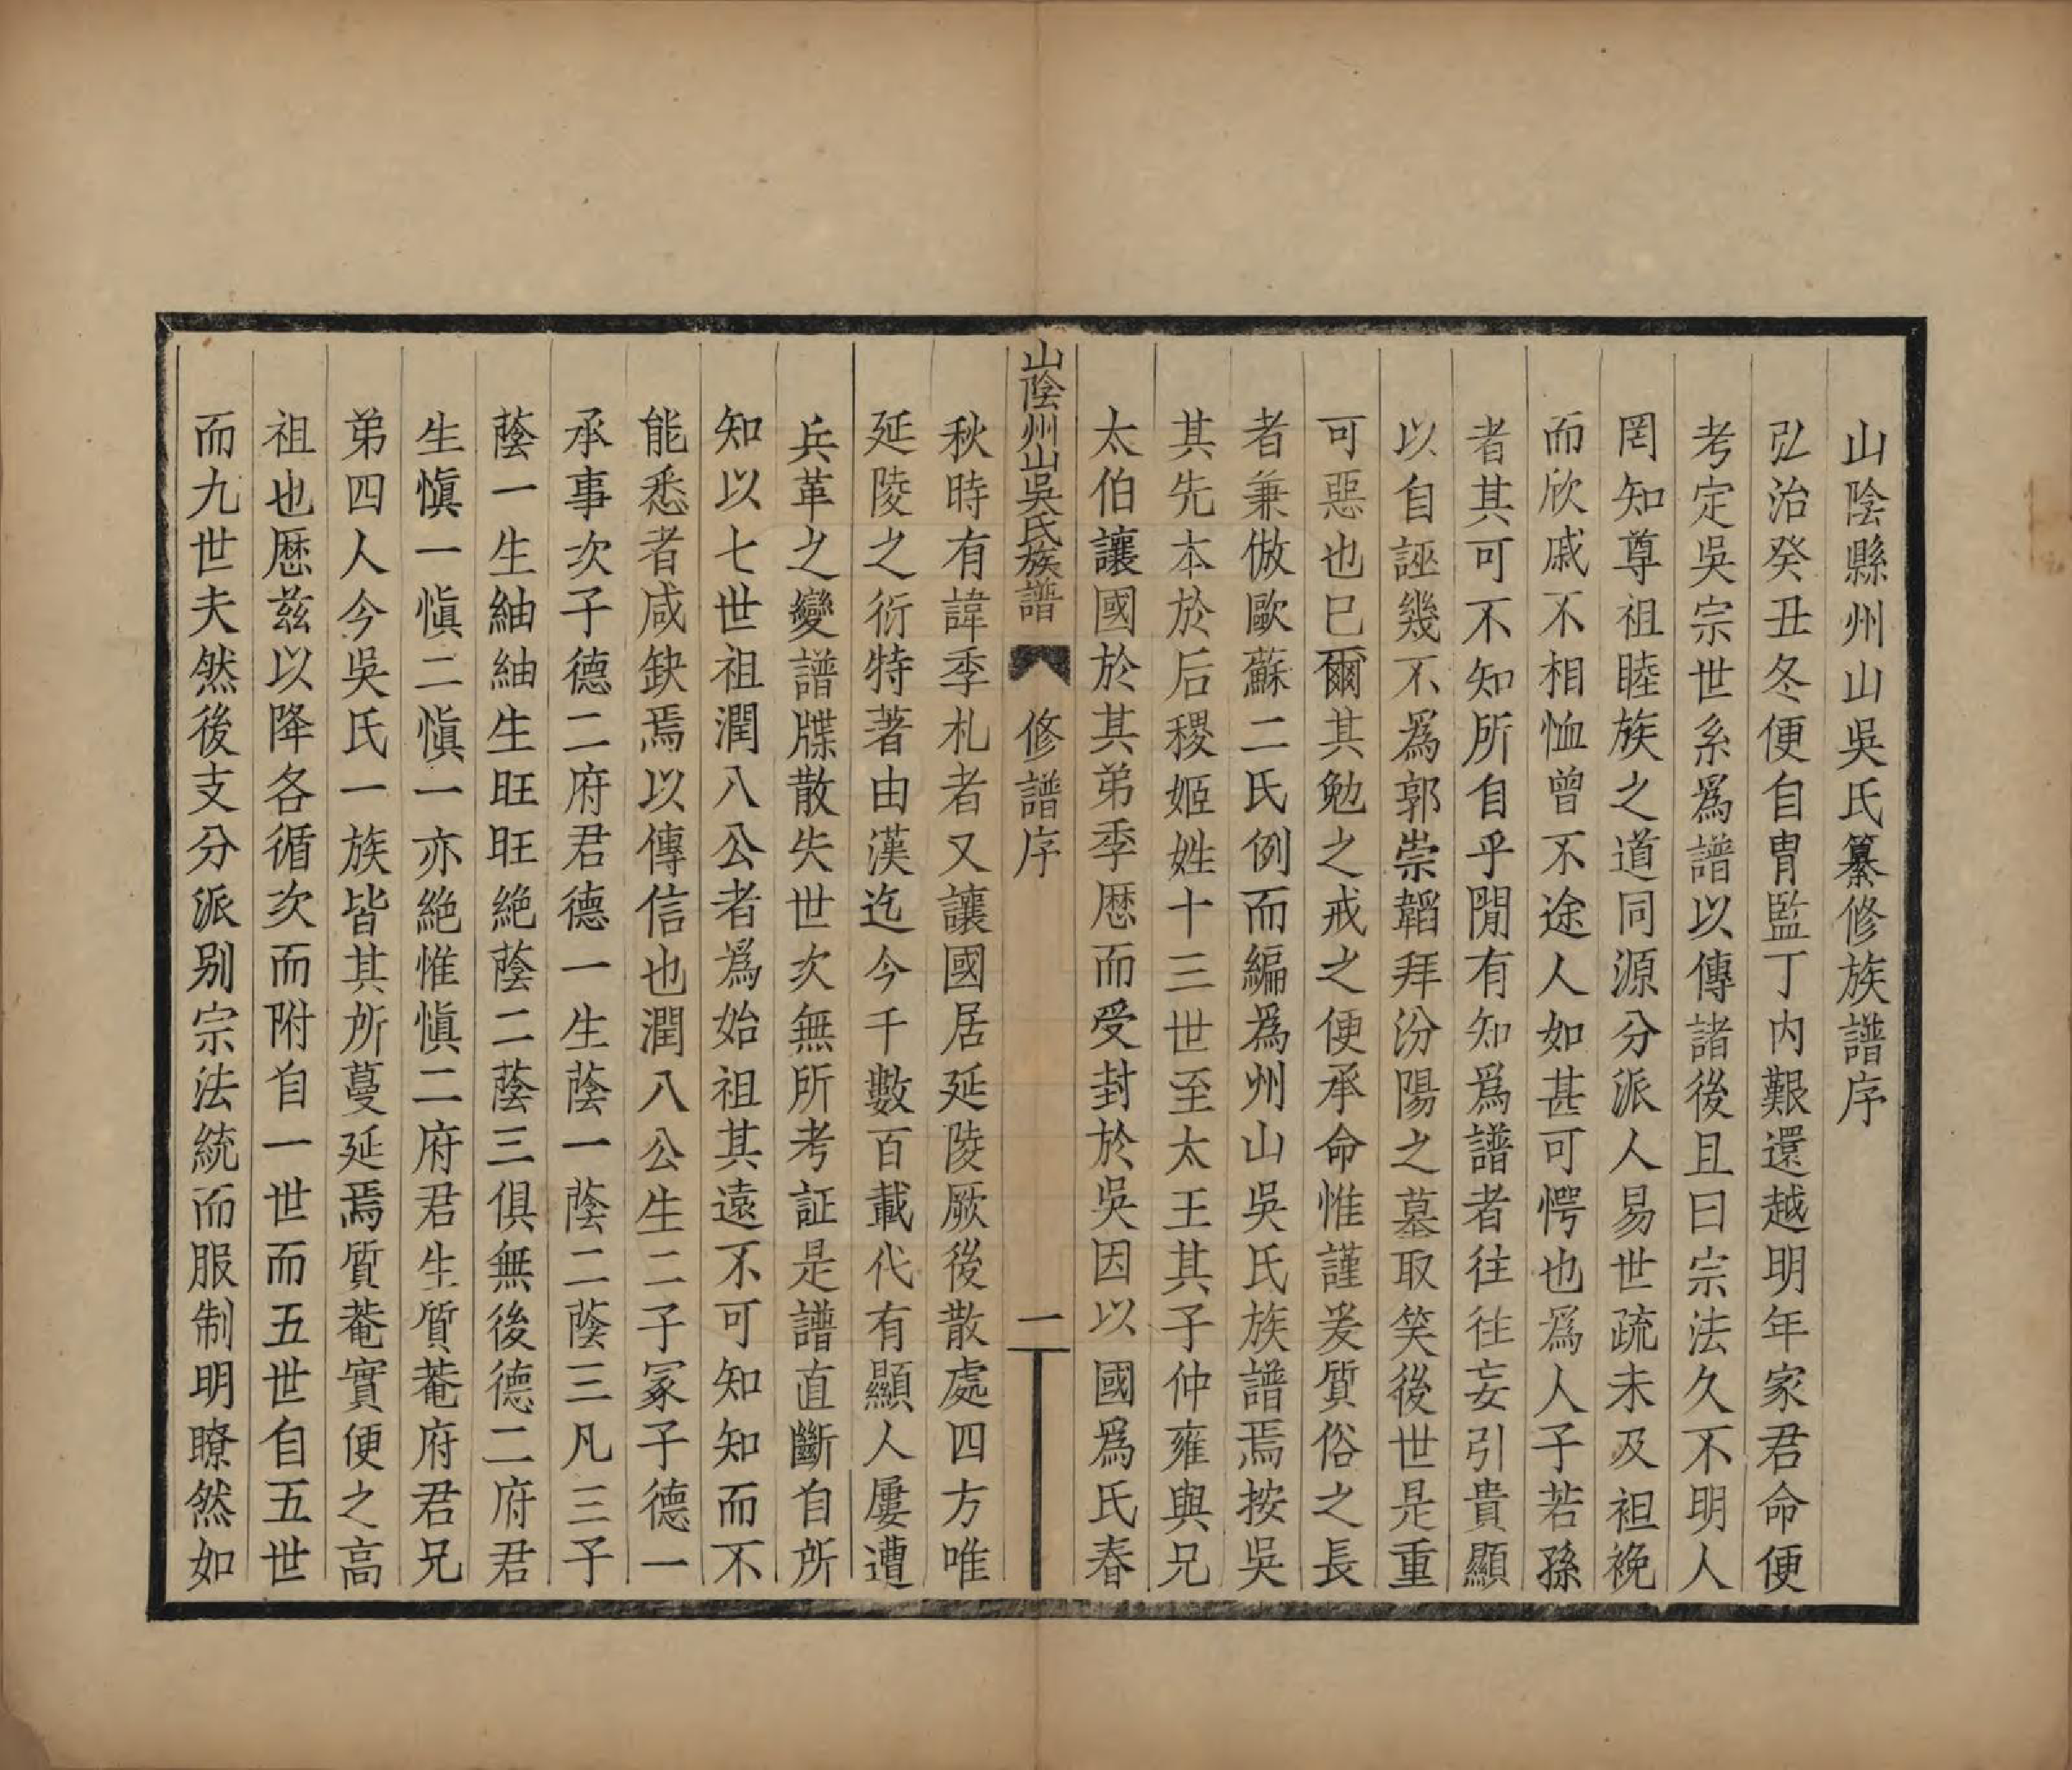 山陰縣州山吳氏纂修族譜序
弘治癸丑冬便自胄監丁內艱還越明年家君命便
考定吳宗世系爲譜以傳諸後且曰宗法久不明人
罔知尊祖睦族之道同源分派人易世疏未及袒裞
而欣戚不相恤曾不途人如甚可愕也爲人子若孫
者其可不知所自乎閒有知爲譜者往往妄引貴顯
以自誣幾不爲郭崇韜拜汾陽之墓取笑後世是重
可惡也已爾其勉之戒之便承命惟謹爰質俗之長
者兼倣歐蘇二氏例而編爲州山吳氏族譜焉按吳
其先本於后稷姬姓十三世至太王其子仲雍與兄
太伯讓國於其弟季歷而受封於吳因以國爲氏春
山陰州山吳氏族譜 修譜序 一
秋時有諱季札者又讓國居延陵厥後散處四方唯
延陵之衍特著由漢迄今千數百載代有顯人屢遭
兵革之變譜牒散失世次無所考証是譜直斷自所
知以七世祖潤八公者爲始祖其遠不可知知而不
能悉者咸缺焉以傳信也潤八公生二子冢子德一
承事次子德二府君德一生蔭一蔭二蔭三凡三子
蔭一生紬紬生旺旺絶蔭二蔭三俱無後德二府君
生愼一愼二愼一亦絶惟愼二府君生質菴府君兄
弟四人今吳氏一族皆其所蔓延焉質菴實便之高
祖也歷兹以降各循次而附自一世而五世自五世
而九世夫然後支分派別宗法統而服制明瞭然如